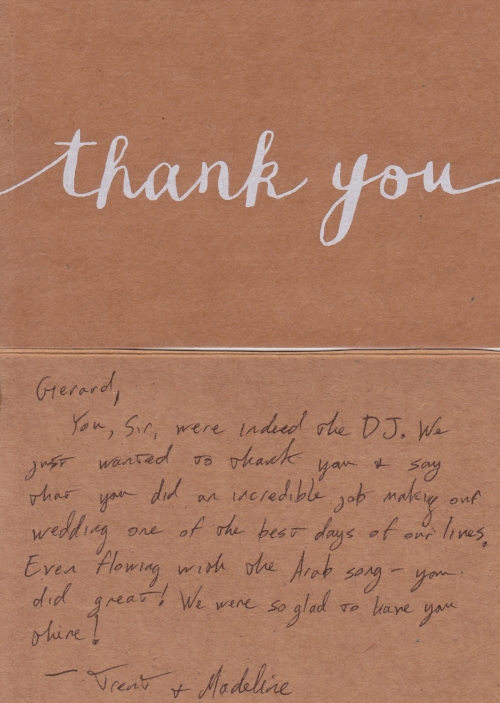 thank you
Gerard,
You, Sir, were indeed the DJ. We
just wanted to thank you + say
that you did an incredible job making our
wedding one of the best days of our lives.
Even flowing with the Arab song - you
did great! We were so glad to have you
there!
- Trent + Madeline